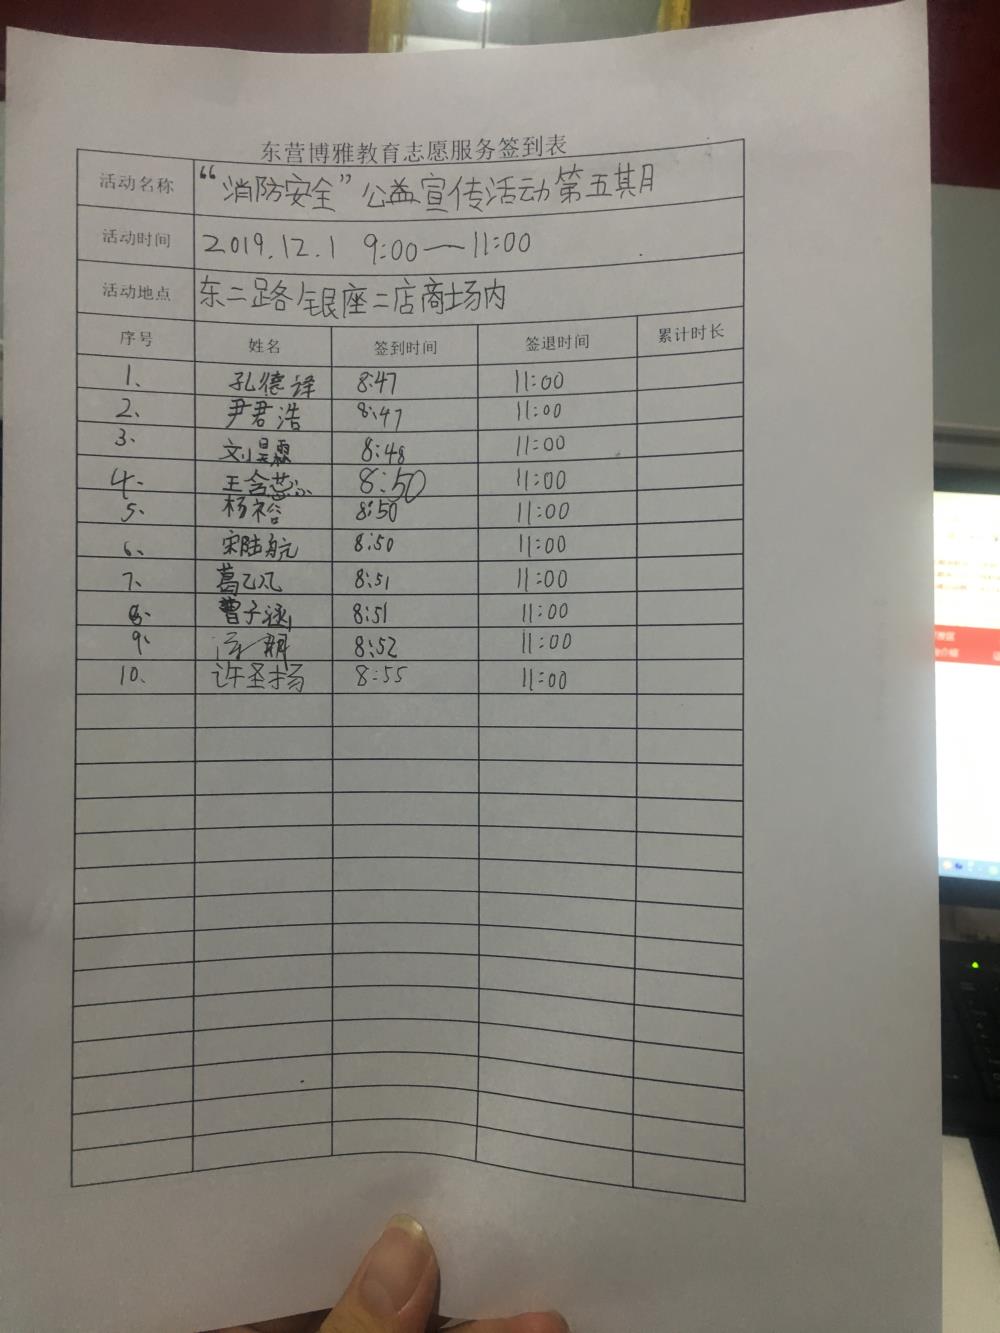 东营博雅教育志愿服务签到表
活动名称 “消防安全”公益宣传活动第五期
活动时间 2019.12.1 9:00—11:00
活动地点 东二路银座二店商场内
序号 姓名 签到时间 签退时间 累计时长
1、 孔德译 8:47 11:00
2、 尹君浩 8:47 11:00
3、 刘昊霖 8:48 11:00
4、 王含蕊 8:50 11:00
5、 杨裕 8:50 11:00
6、 宋陆航 8:50 11:00
7、 葛乙凡 8:51 11:00
8、 曹子涵 8:51 11:00
9、 8:52 11:00
10、 许圣扬 8:55 11:00